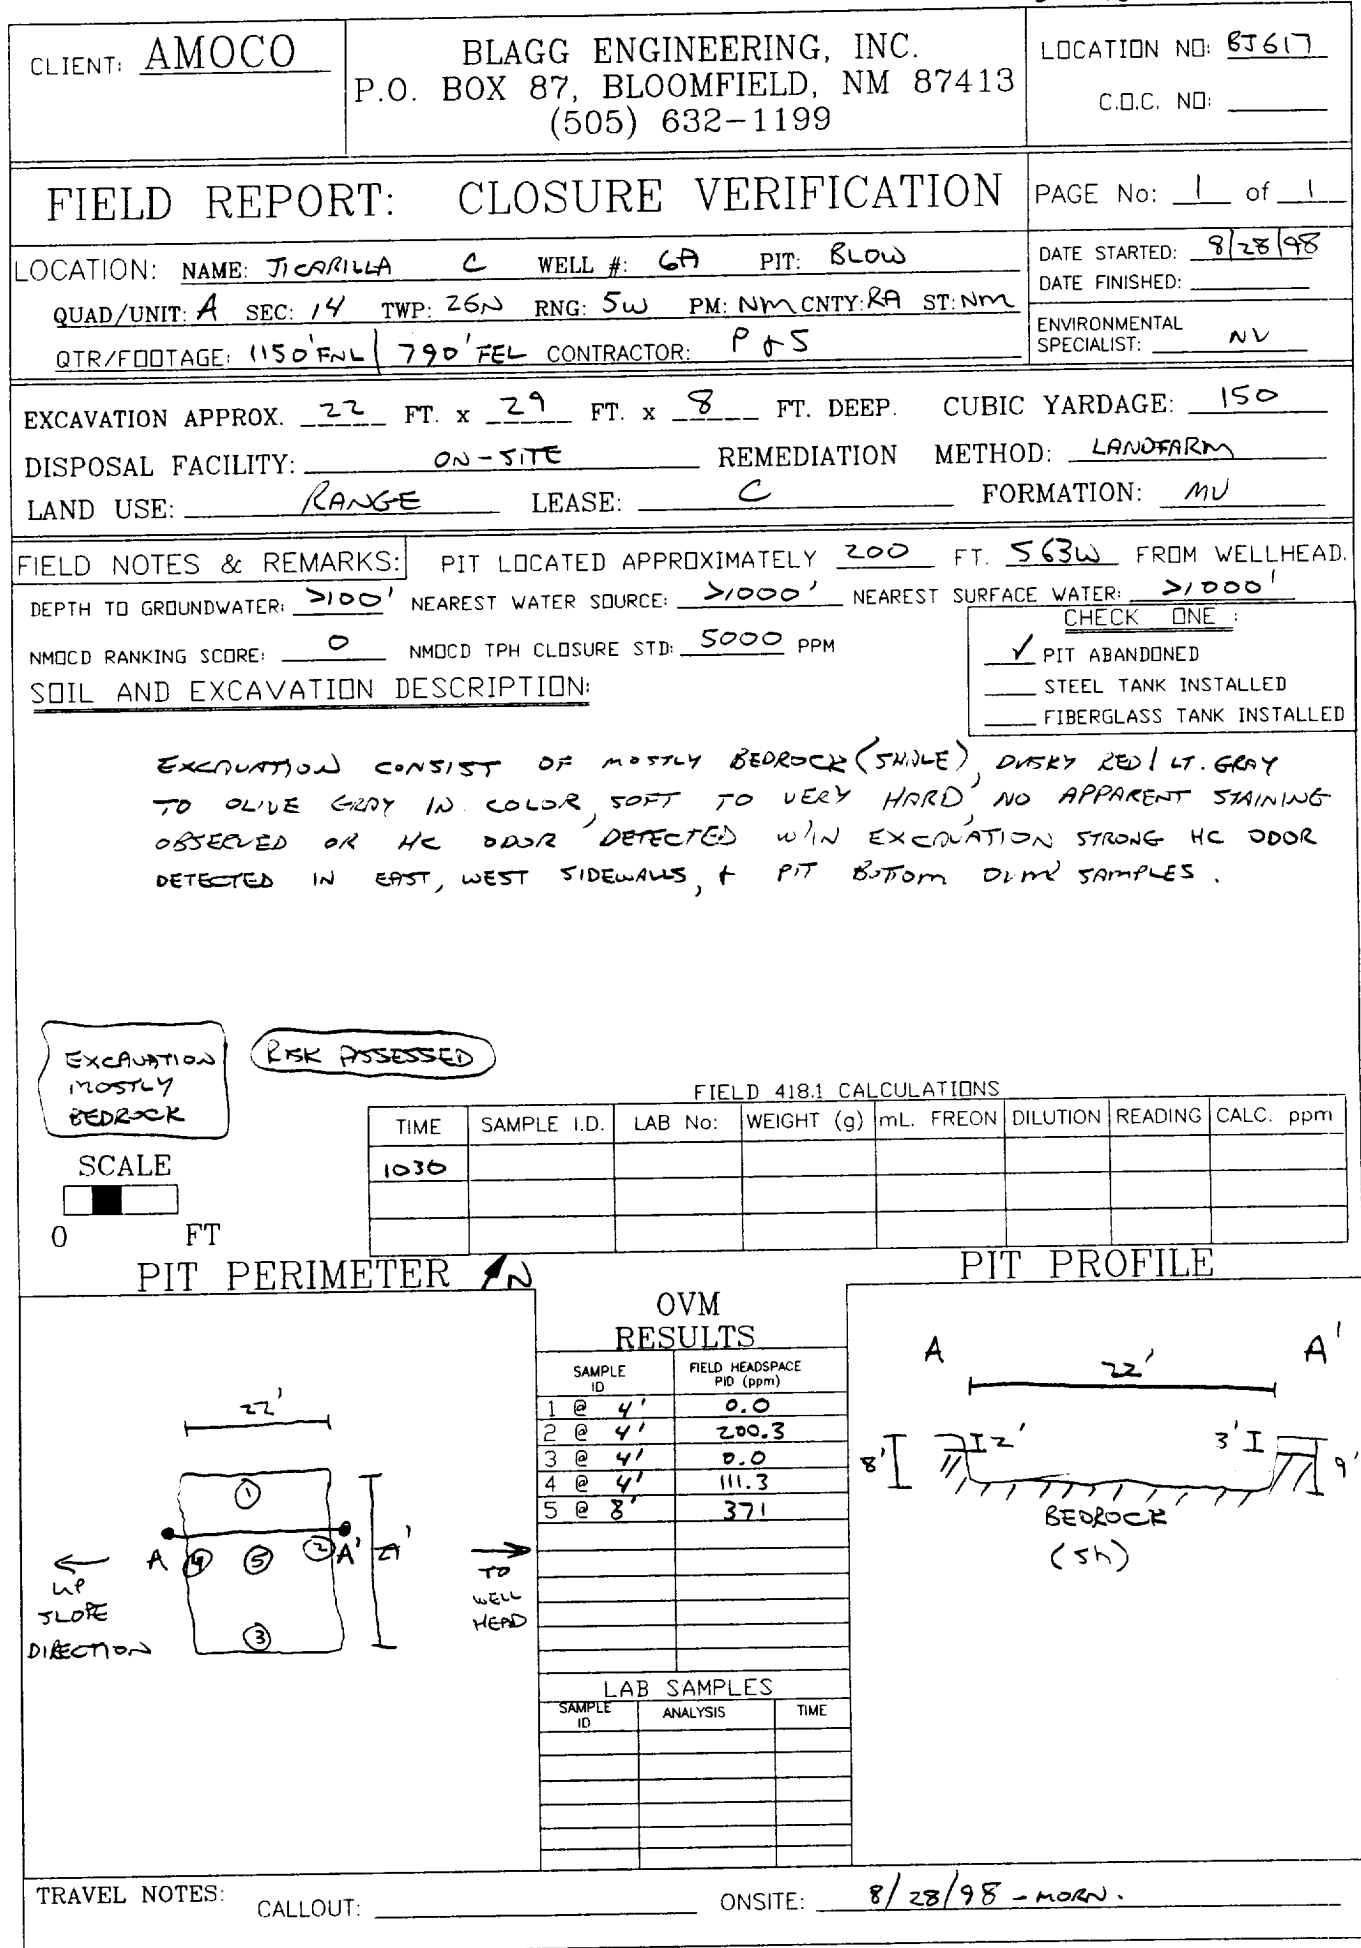 CLIENT: AMOCO
BLAGG ENGINEERING, INC.
P.O. BOX 87, BLOOMFIELD, NM 87413
(505) 632-1199
LOCATION NO: BJ617
C.O.C. NO:
FIELD REPORT: CLOSURE VERIFICATION
PAGE No: 1 of 1
LOCATION: NAME: JICARILLA C WELL #: 6A PIT: BLOW
QUAD/UNIT: A SEC: 14 TWP: 26N RNG: 5W PM: NM CNTY: RA ST: NM
QTR/FOOTAGE: 1150'FNL / 790'FEL CONTRACTOR: P & S
DATE STARTED: 8/28/98
DATE FINISHED:
ENVIRONMENTAL
SPECIALIST: NV
EXCAVATION APPROX. 22 FT. x 29 FT. x 8 FT. DEEP. CUBIC YARDAGE: 150
DISPOSAL FACILITY: ON-SITE REMEDIATION METHOD: LANDFARM
LAND USE: RANGE LEASE: C FORMATION: MV
FIELD NOTES & REMARKS: PIT LOCATED APPROXIMATELY 200 FT. S63W FROM WELLHEAD.
DEPTH TO GROUNDWATER: >100' NEAREST WATER SOURCE: >1000' NEAREST SURFACE WATER: >1000'
NMOCD RANKING SCORE: 0 NMOCD TPH CLOSURE STD: 5000 PPM
CHECK ONE :
✓ PIT ABANDONED
STEEL TANK INSTALLED
FIBERGLASS TANK INSTALLED
SOIL AND EXCAVATION DESCRIPTION:
EXCAVATION CONSIST OF MOSTLY BEDROCK (SHALE), DUSKY RED / LT. GRAY
TO OLIVE GRAY IN COLOR, SOFT TO VERY HARD, NO APPARENT STAINING
OBSERVED OR HC ODOR DETECTED W/IN EXCAVATION STRONG HC ODOR
DETECTED IN EAST, WEST SIDEWALLS, + PIT BOTTOM OVM SAMPLES.
EXCAVATION
MOSTLY
BEDROCK
RISK ASSESSED
FIELD 418.1 CALCULATIONS
TIME SAMPLE I.D. LAB No: WEIGHT (g) mL. FREON DILUTION READING CALC. ppm
1030
SCALE
0 FT
PIT PERIMETER N
22'
1
A 4 5 2 A' 29'
3
UP
SLOPE
DIRECTION
TO
WELL
HEAD
OVM
RESULTS
SAMPLE ID FIELD HEADSPACE PID (ppm)
1 @ 4' 0.0
2 @ 4' 200.3
3 @ 4' 0.0
4 @ 4' 111.3
5 @ 8' 371
LAB SAMPLES
SAMPLE ID ANALYSIS TIME
PIT PROFILE
A A'
22'
8' 2' 3' 9'
BEDROCK
(Sh)
TRAVEL NOTES: CALLOUT: ONSITE: 8/28/98 - MORN.